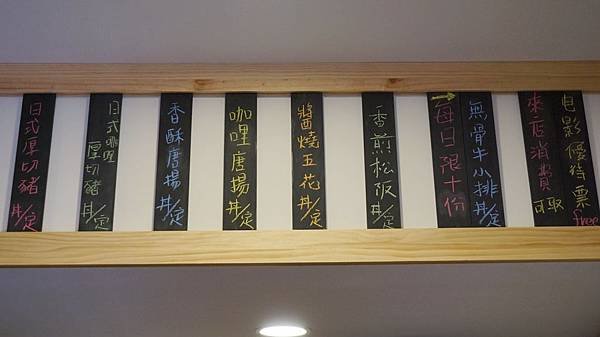 日式厚切豬 丼/定
日式咖哩厚切豬 丼/定
香酥唐揚 丼/定
咖哩唐揚 丼/定
醬燒五花 丼/定
香煎松阪 丼/定
→每日限十份
無骨牛小排 丼/定
來店消費可取
电影優待票free